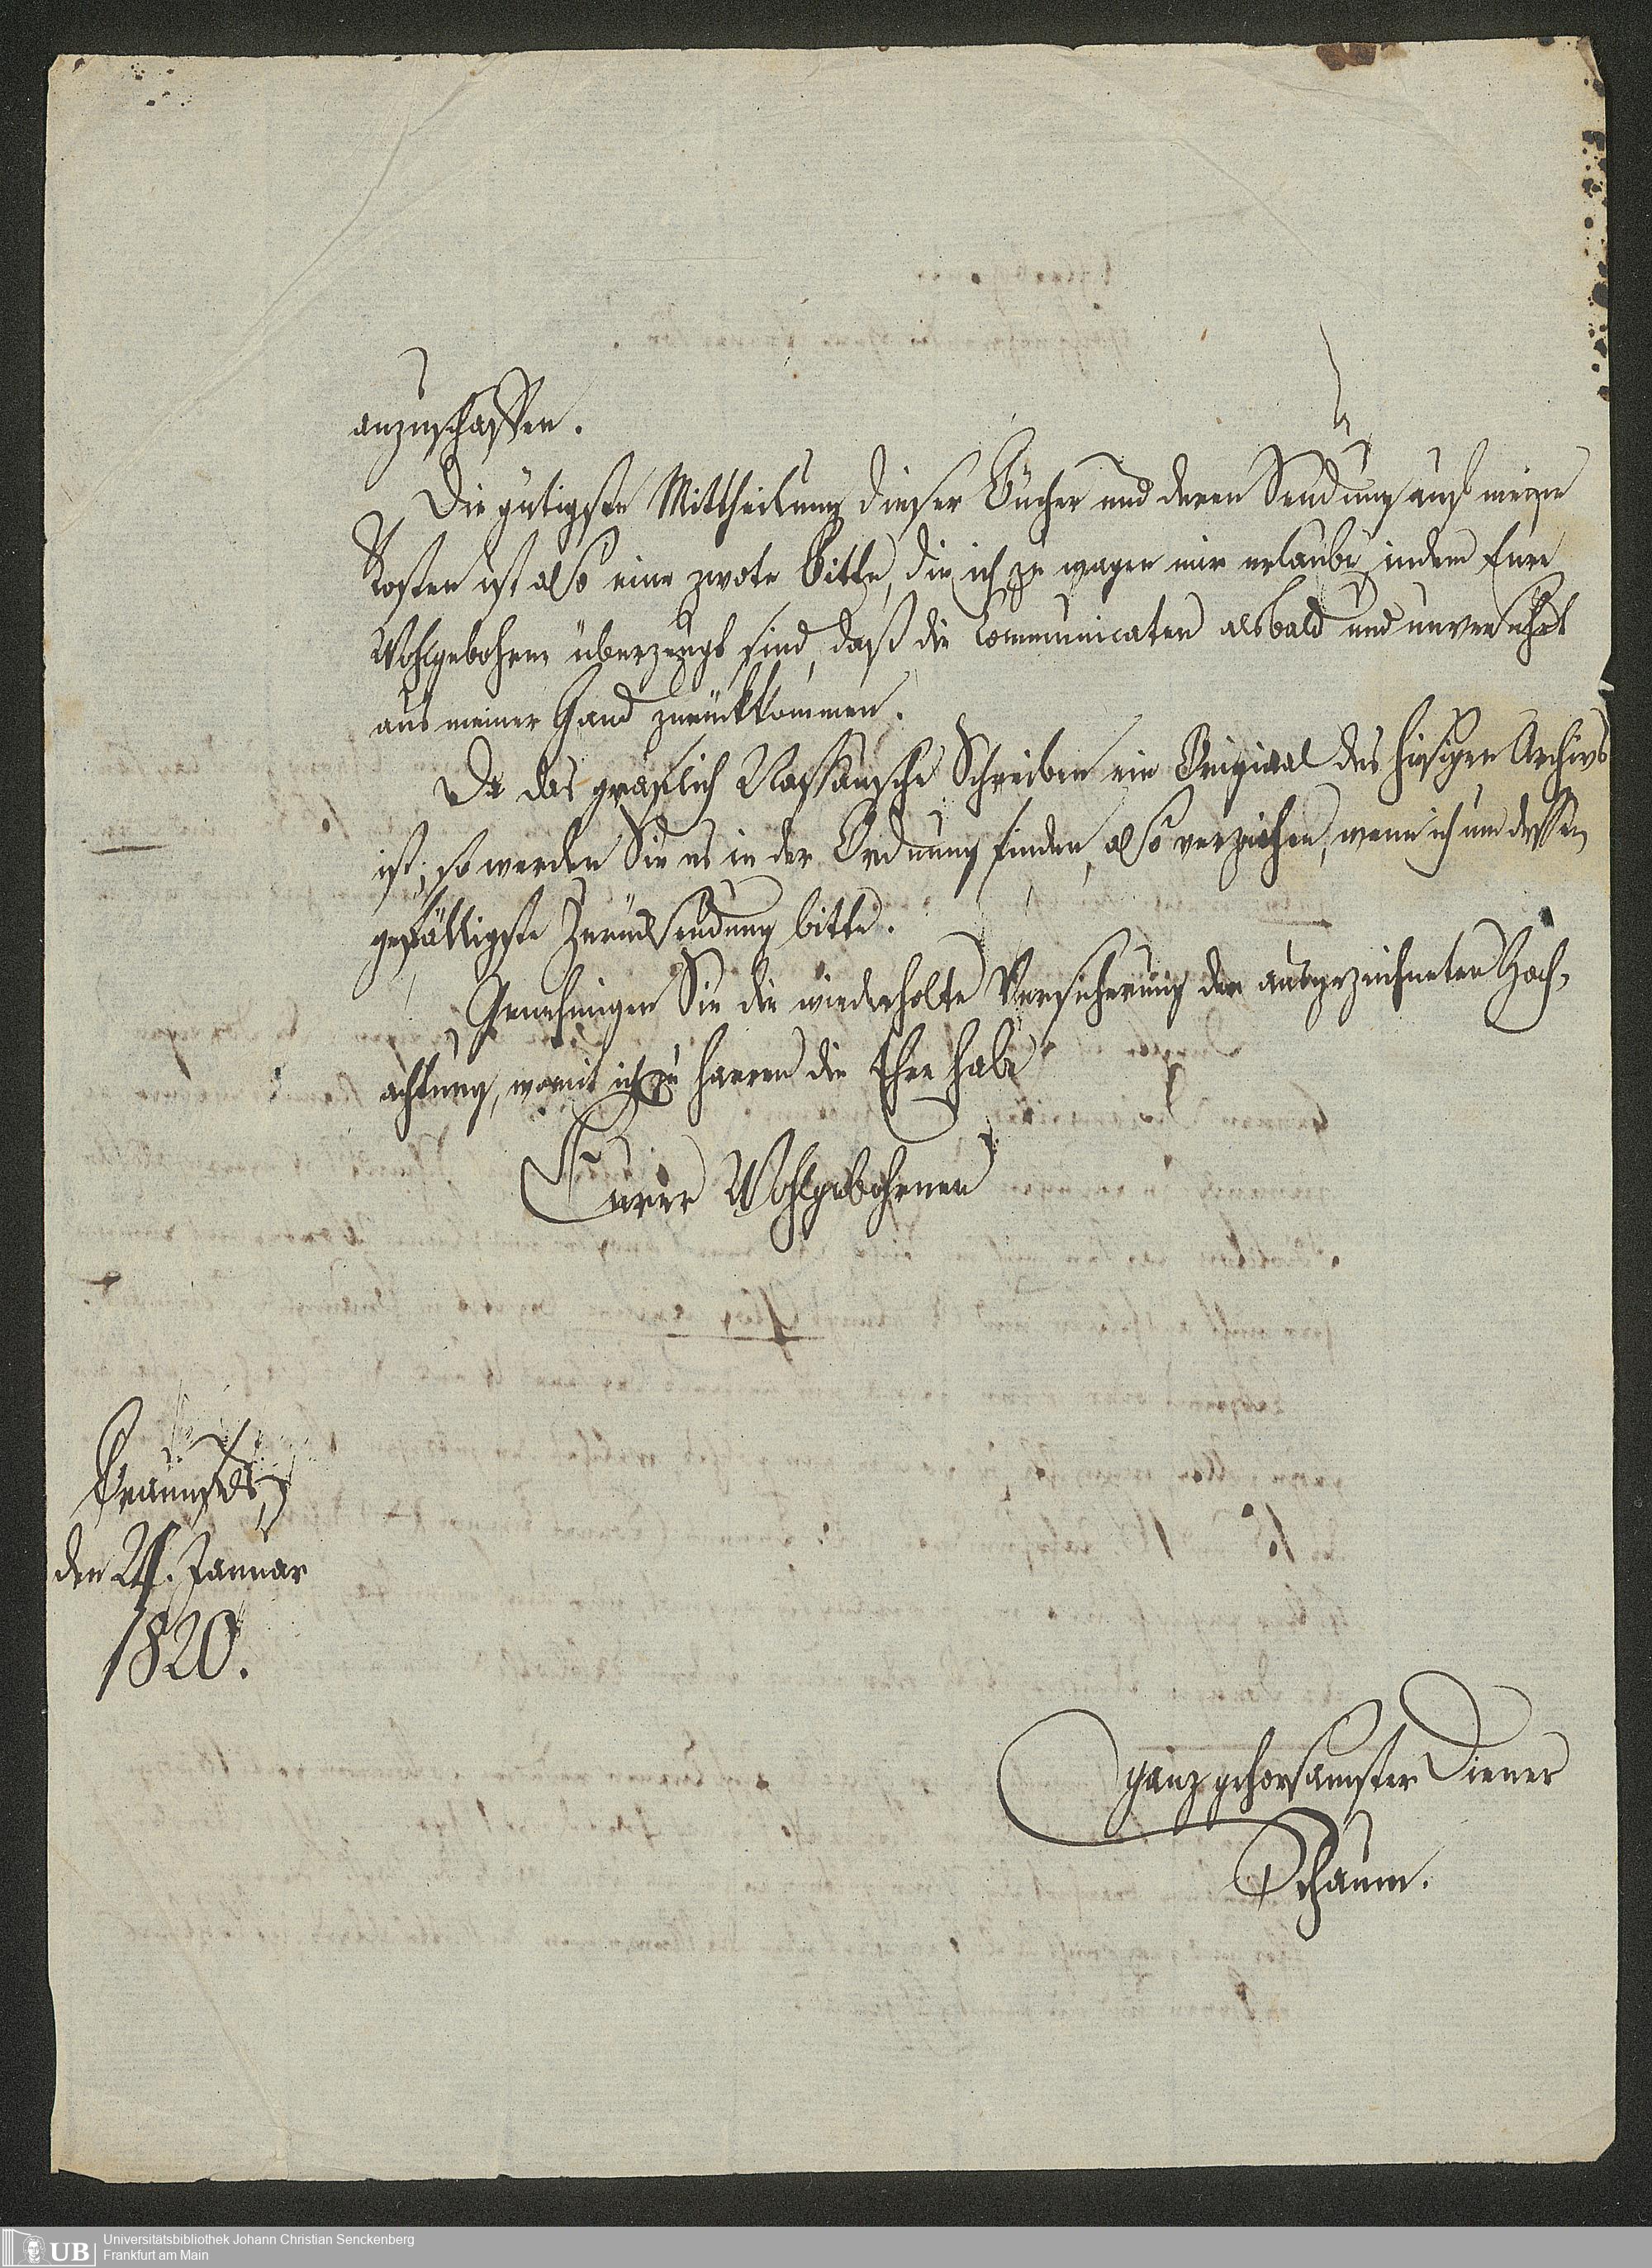 anzuschaffen.
Die gütigste Mittheilung dieser Bücher und deren Sendung auf meine
Kosten ist also eine zwote Bitte, die ich zu wagen mir erlaube, indem Eure
Wohlgebohren überzeugt sind, daß die Communicaten alsbald und unversehrt
aus meiner Hand zurückkommen.
Da das gräflich Nassauische Schreiben ein Original des hiesigen Archivs
ist; so werden Sie es in der Ordnung finden, also verzeihen, wenn ich um dessen
gefälligste Zurücksendung bitte.
Genehmigen Sie die wiederholte Versicherung der ausgezeichneten Hoch-
achtung, womit ich zu harren die Ehre habe
Eurer Wohlgebohrnen
Braunfels,
den 24. Januar
1820.
ganz gehorsamster Diener
Schaum.
UB
Universitätsbibliothek Johann Christian Senckenberg
Frankfurt am Main